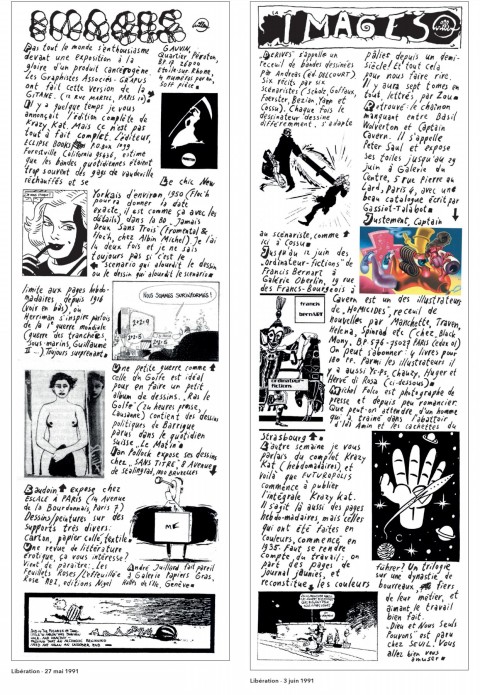 IMAGES
Pas tout le monde s'enthousiasme
devant une exposition à la
gloire d'un produit cancérogène
Les Graphistes Associés-GRAPUS
ont fait cette version de la
GITANE
Il y a quelque temps je vous
annonçait l'édition complète de
Krazy Kat. Mais ce n'est pas
tout à fait complet. L'éditeur,
ECLIPSE BOOKS P.O.BOX 1099
Forestville California 95436, estime
que les bandes quotidiennes étaient
trop souvent des gags de vaudeville
réchauffés et se
limite aux pages hebdo-
madaires, depuis 1916
(voir en bas), où
Herriman s'inspire parfois
de la 1e guerre mondiale
(guerre des tranchées,
sous marins, Guillaume
II ...) Toujours surprenant.
GAUVIN,
quartier Péquton,
BP 18 26800
Etoile-sur-Rhône,
le numéro 20F,
50FF pièce.
Le chic New
Yorkais d'environ 1950 (Floc'h
pourra donner la date
exacte, il est comme ça avec les
détails) dans la BD. Jamais
Deux Sans Trois (Fromental &
Floc'h, chez Albin Michel). Je l'ai
lu deux fois et je ne sais
toujours pas si c'est le
scénario qui alourdit le dessin
ou le dessin qui alourdit le scénario
NOUS SOMMES SURINFORMÉS!
Une petite guerre comme
celle du Golfe est idéal
pour en faire un petit
album de dessins. "Raï le
Golfe" (24 heures presse,
Lausanne) contient des dessins
politiques de Barrigue
parus dans le quotidien
suisse "Le Matin"
Jan Pollock expose ses dessins
chez "SANS TITRE" 8 Avenue
de Stalingrad, 1000 BRUXELLES
Baudoin expose chez
ESCALE A PARIS (14 Avenue
de la Bourdonnais, Paris 7)
Dessins/peintures sur des
supports très divers:
carton, papier collé, textile.
Une revue de littérature
érotique, ça vous intéresse?
Vient de paraître: Les
Feuillets Roses
ME
André Juillard fait pareil
à Galerie Papiers Gras,
Genève
Libération - 27 mai 1991
IMAGES
DÉRIVES s'appelle un
recueil de bandes dessinées
par Andreas (éd. DELCOURT)
Six récits par six
scénaristes (Schale, Goffaux,
Foerster, Bézian, Yann et
Cossu). Chaque fois le
dessinateur dessine
différemment, s'adapte
au scénariste, comme
ici à Cossu
Jusqu'au 12 juin des
"ordinateur-fictions" de
Francis Bernart à
Galerie Oberlin, 19 rue
des Francs-Bourgeois à
Strasbourg
francis
bernart
ordinateur-
fictions
L'autre semaine je vous
parlais du complet Krazy
Kat (hebdomadaires), et
voilà que FUTUROPOLIS
commence à publier
l'intégrale Krazy Kat.
Il s'agit là aussi des pages
hebdo-madaires, mais celles
qui ont été faites en
couleurs, commencé en
1935. Faut se rendre
compte du travail: on
part des pages de
journal jaunies, et
reconstitue les couleurs
palier depuis un demi-
siècle! Et tout cela
pour nous faire rire.
Il y aura sept tomes en
tous, lettrés par Zou
Retrouvé: le chaînon
manquant entre Basil
Wolverton et Captain
Cavern. Il s'appelle
Peter Saul et expose
ses toiles jusqu'au 29
juin à Galerie du
Centre, 5 rue Pierre au
Lard, Paris 4, avec un
beau catalogue écrit par
Gassiot-Talabot.
Justement, Captain
Cavern est un des illustrateurs
de "HOMICIDES", recueil de
nouvelles par Manchette, Traven,
Helena, Spinrad etc (chez Black
Mony, BP 596-75027 PARIS CÉDEX 01)
On peut s'abonner: 4 livres pour
Parmi les illustrateurs il
y a aussi Y5/P5, Chauzy, Hager et
Hervé di Rosa (ci-dessous)
Michel Folco est photographe de
presse et depuis peu romancier.
Que peut-on attendre d'un homme
qui a traîné dans l'abattoir
d'Idi Amin et les cachettes du
führer? Un trilogie
sur une dynastie de
bourreaux, fiers
de leur métier, et
aimant le travail
bien fait.
"Dieu et Nous Seuls
Pouvons" est paru
chez SEUIL. Vous
allez bien vous
amuser
Libération - 3 juin 1991